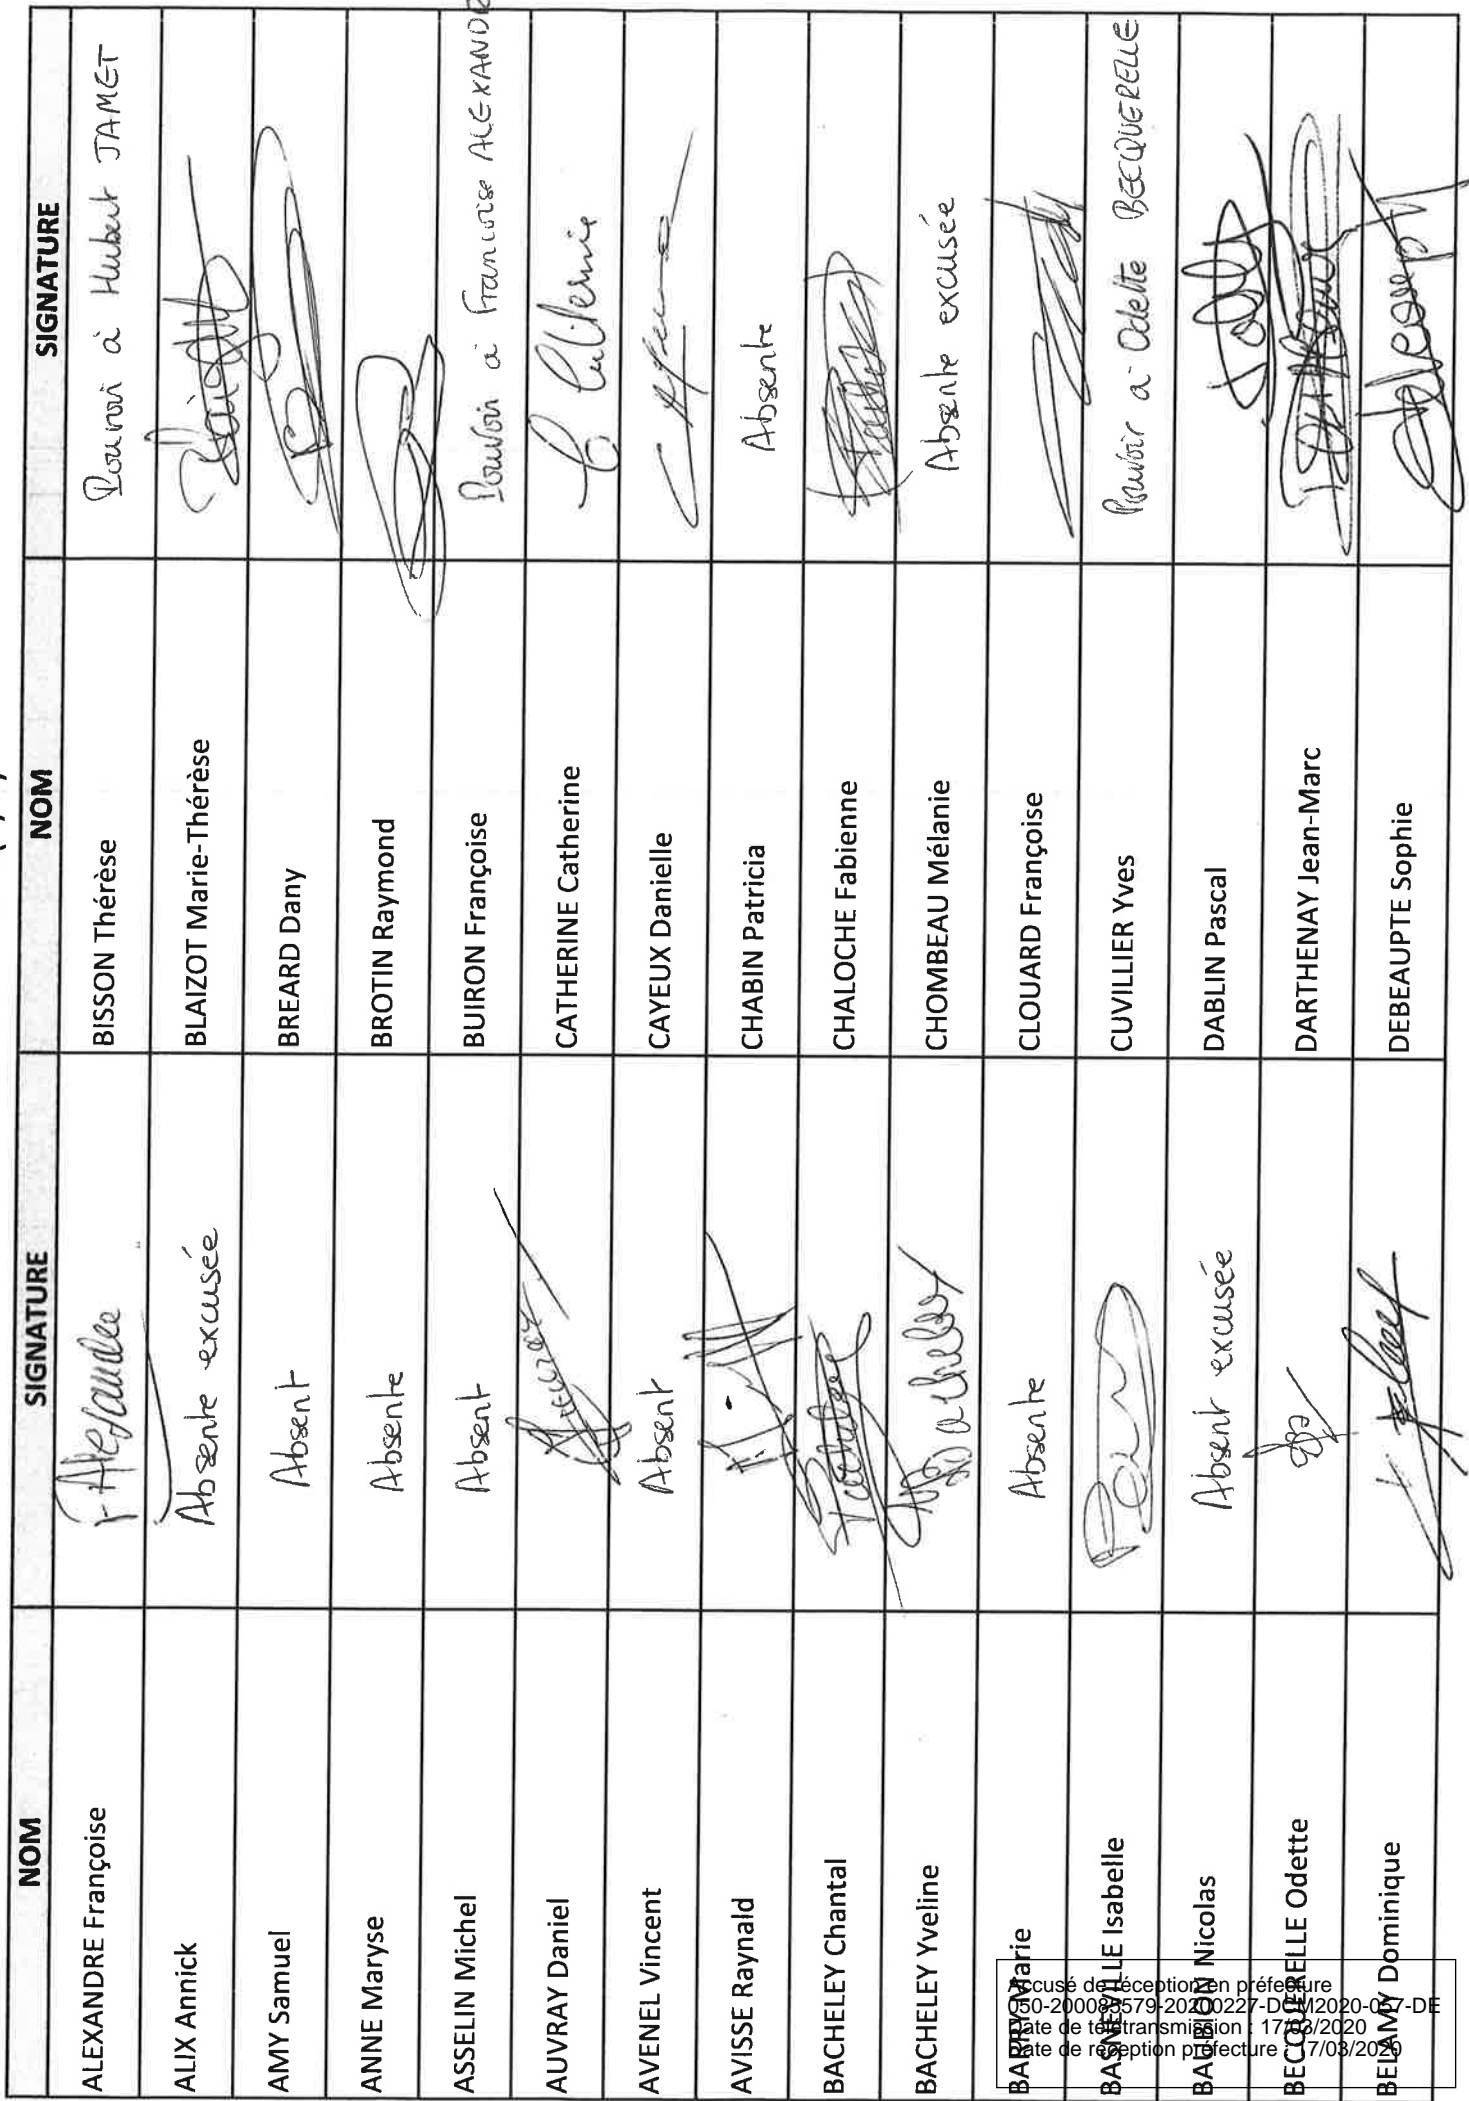 NOM SIGNATURE NOM SIGNATURE
ALEXANDRE Françoise F. Alexandre BISSON Thérèse Pouvoir à Hubert JAMET
ALIX Annick Absente excusée BLAIZOT Marie-Thérèse
AMY Samuel Absent BREARD Dany
ANNE Maryse Absente BROTIN Raymond
ASSELIN Michel Absent BUIRON Françoise Pouvoir à Francoise ALEXANDR
AUVRAY Daniel CATHERINE Catherine
AVENEL Vincent Absent CAYEUX Danielle
AVISSE Raynald CHABIN Patricia Absente
BACHELEY Chantal CHALOCHE Fabienne
BACHELEY Yveline CHOMBEAU Mélanie Absente excusée
BARRY Marie Absente CLOUARD Françoise
BASNEVILLE Isabelle CUVILLIER Yves Pouvoir à Odette BECQUERELLE
BAUBION Nicolas Absent excusée DABLIN Pascal
BECQUERELLE Odette DARTHENAY Jean-Marc
BELAMY Dominique DEBEAUPTE Sophie
Accusé de réception en préfecture
050-200083579-20200227-DCM2020-057-DE
Date de télétransmission : 17/03/2020
Date de réception préfecture : 17/03/2020